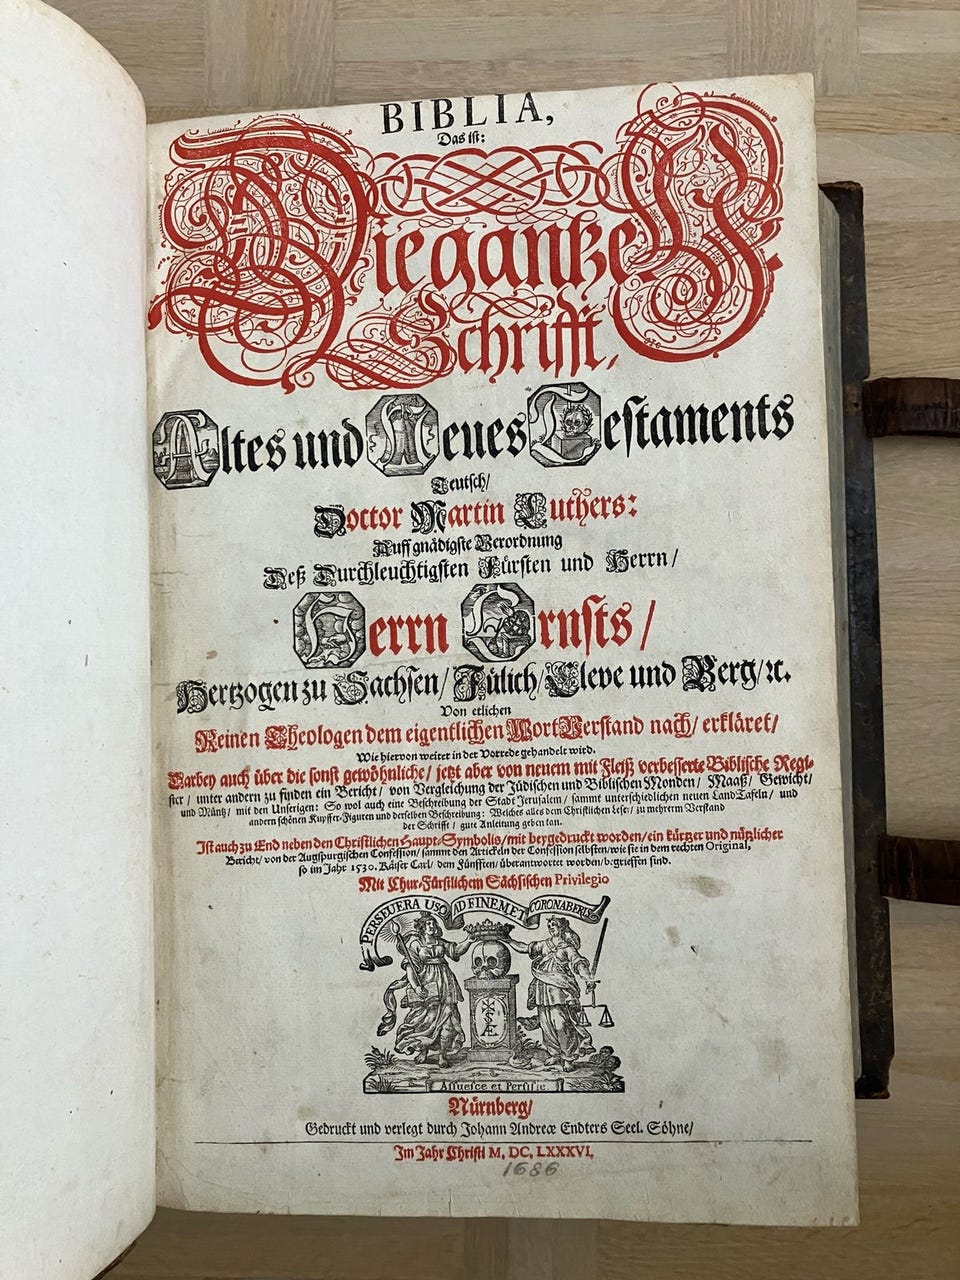 BIBLIA,
Das ist:
Die gantze H.
Schrifft,
Altes und Neues Testaments
Teutsch/
Doctor Martin Luthers:
Auff gnädigste Verordnung
Deß Durchleuchtigsten Fürsten und Herrn/
Herrn Ernsts/
Hertzogen zu Sachsen/ Jülich/ Cleve und Berg/ ꝛc.
Von etlichen
Reinen Theologen dem eigentlichen WortVerstand nach/ erkläret/
Wie hiervon weiter in der Vorrede gehandelt wird.
Darbey auch über die sonst gewöhnliche/ jetzt aber von neuem mit Fleiß verbesserte Biblische Regi-
ster/ unter andern zu finden ein Bericht/ von Vergleichung der Jüdischen und Biblischen Monden/ Maaß/ Gewicht/
und Müntz/ mit den Unserigen: So wol auch eine Beschreibung der Stadt Jerusalem/ sammt unterschiedlichen neuen LandTafeln/ und
andern schönen Kupffer-Figuren und derselben Beschreibung: Welches alles dem Christlichen Leser/ zu mehrerm Verstand
der Schrifft/ gute Anleitung geben kan.
Ist auch zu End neben den Christlichen Haupt-Symbolis/ mit beygedruckt worden/ ein kurtzer und nützlicher
Bericht/ von der Augspurgischen Confession/ sammt den Artickeln der Confession selbsten/ wie sie in dem rechten Original,
so im Jahr 1530. Käiser Carl/ dem Fünfften/ überantwortet worden/ begrieffen sind.
Mit Chur-Fürstlichem Sächsischen Privilegio
PERSEVERA USQ AD FINEM ET CORONABERIS
Assuesce et Persiste
Nürnberg/
Gedruckt und verlegt durch Johann Andreæ Endters Seel. Söhne/
Im Jahr Christi M, DC, LXXXVI,
1686